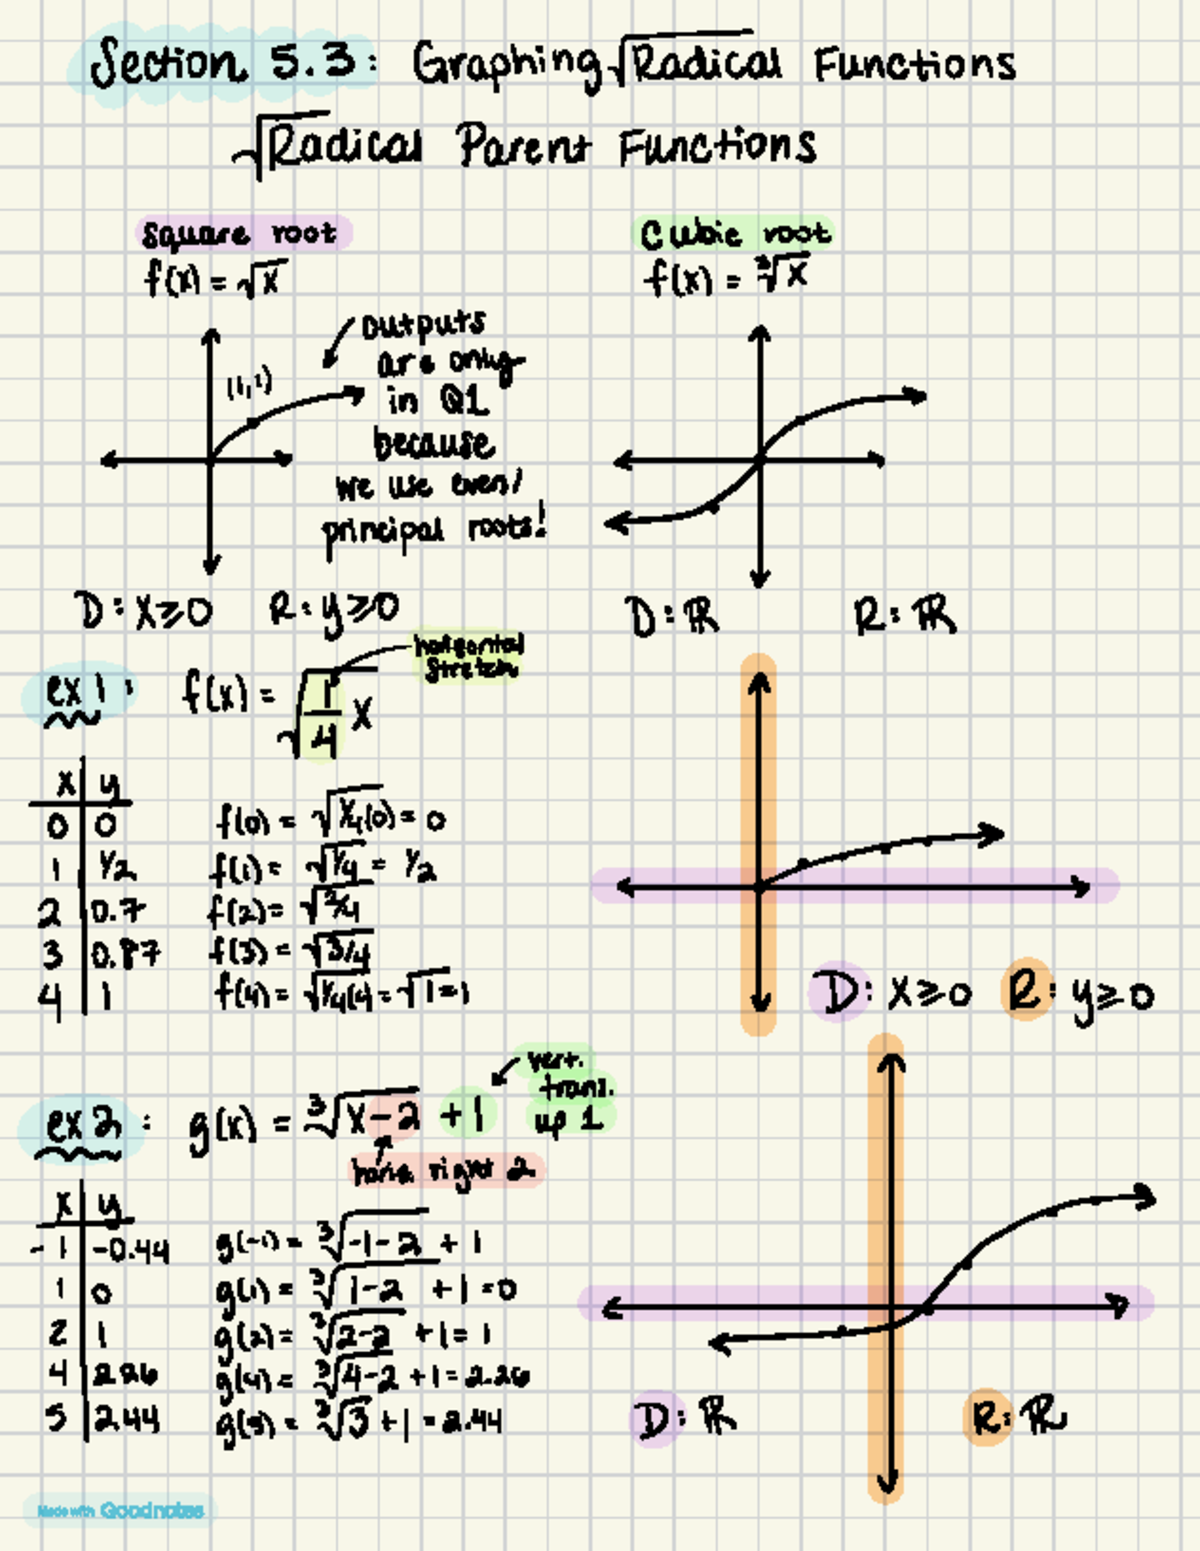 Section 5.3: Graphing √Radical Functions
√Radical Parent Functions
square root
f(x) = √x
(1,1)
outputs
are only
in Q1
because
we use even/
principal roots!
D: x≥0 R: y≥0
Cubic root
f(x) = ∛x
D: ℝ R: ℝ
ex 1: f(x) = √(1/4 x)
horizontal
stretch
x | y
0 | 0
1 | 1/2
2 | 0.7
3 | 0.87
4 | 1
f(0) = √1/4(0) = 0
f(1) = √1/4 = 1/2
f(2) = √2/4
f(3) = √3/4
f(4) = √1/4(4) = √1 = 1
D: x≥0 R: y≥0
ex 2: g(x) = ∛x-2 + 1
vert.
trans.
up 1
right 2
x | y
-1 | -0.44
1 | 0
2 | 1
4 | 2.26
5 | 2.44
g(-1) = ∛-1-2 + 1
g(1) = ∛1-2 + 1 = 0
g(2) = ∛2-2 + 1 = 1
g(4) = ∛4-2 + 1 = 2.26
g(5) = ∛3 + 1 = 2.44
D: ℝ R: ℝ
Made with Goodnotes